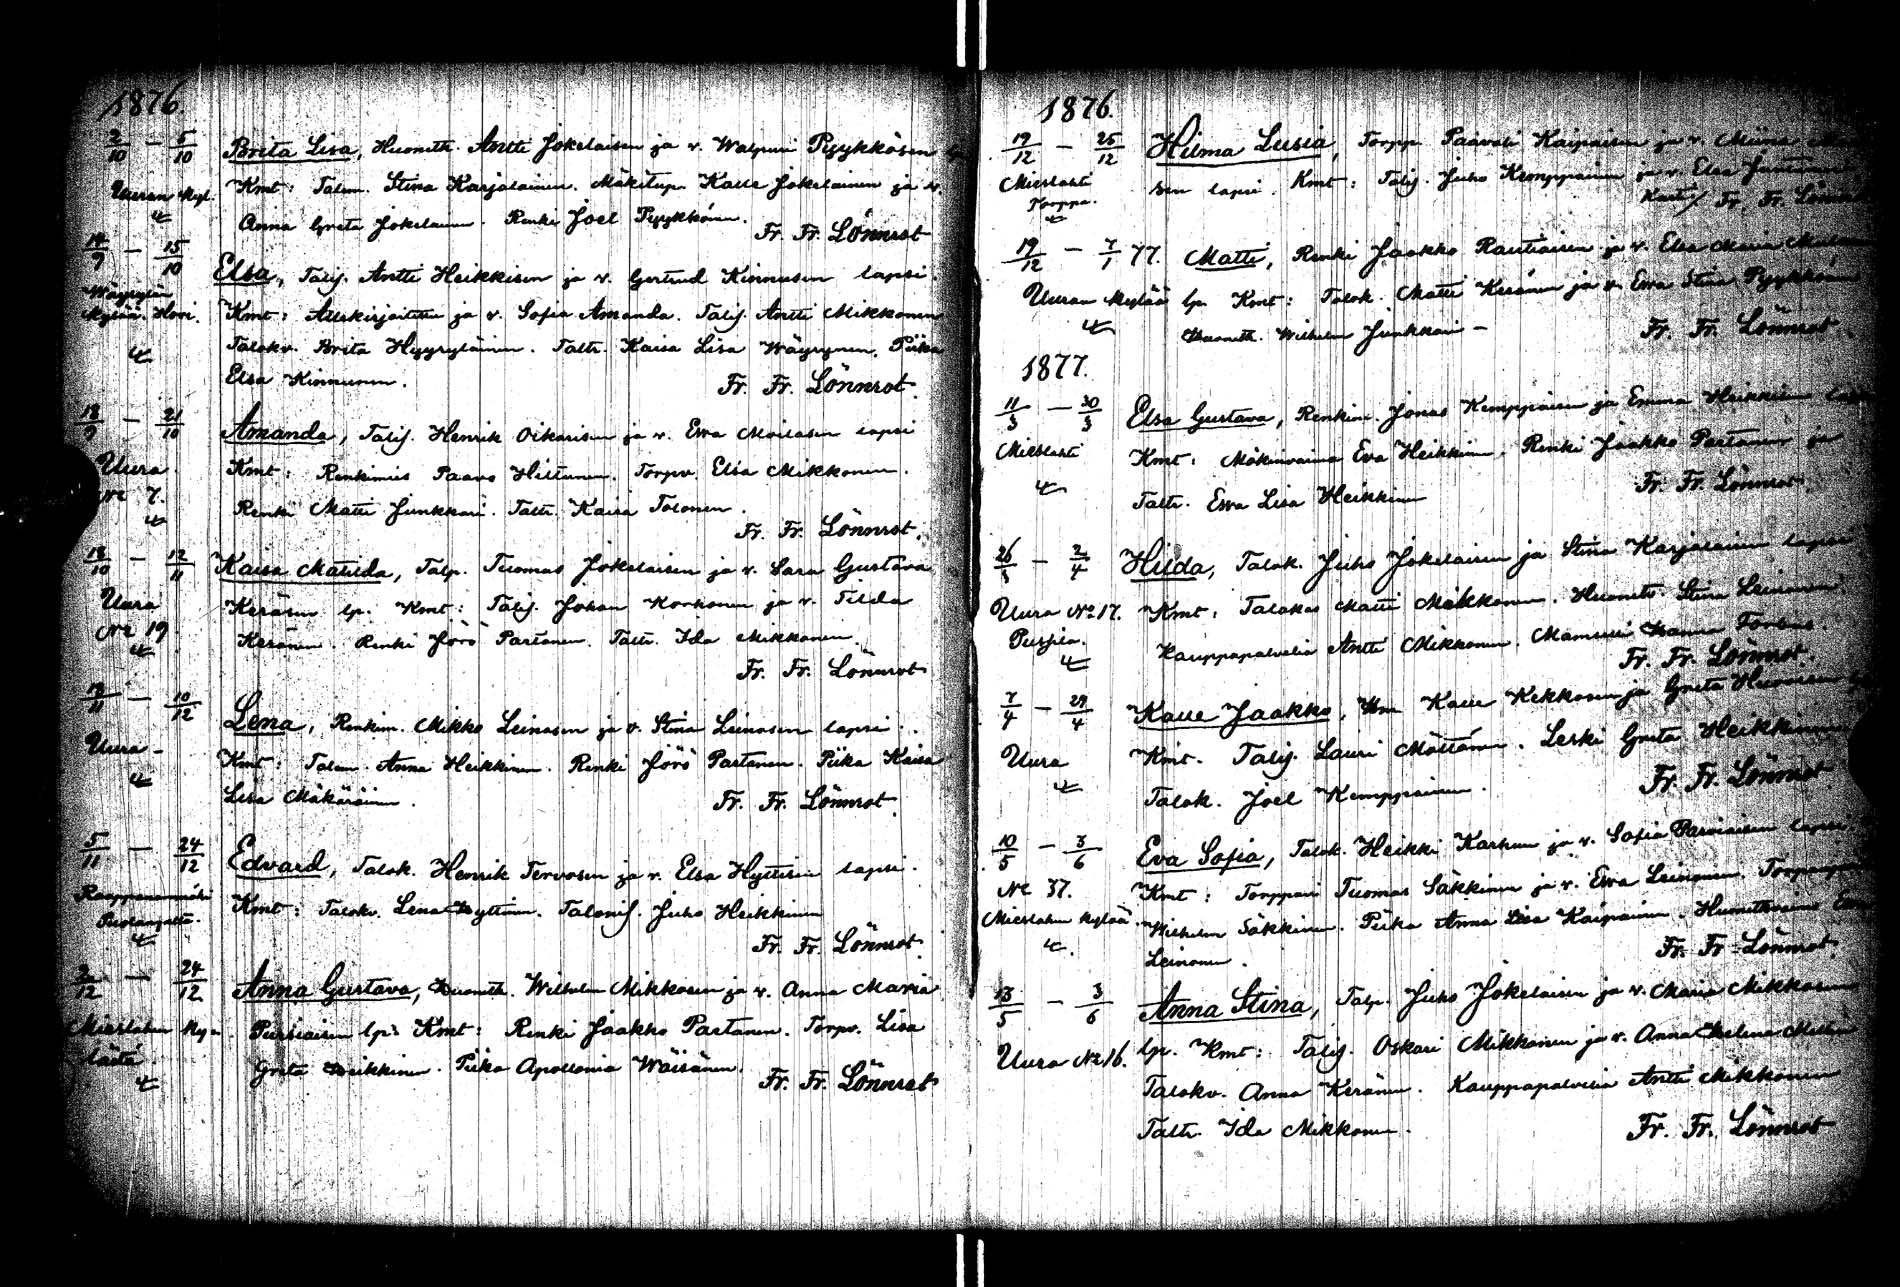 1876.
2/10 – 5/10 Brita Lisa, Huoneth. Antti Jokelaisen ja v. Walpuri Pyykkösen lp.
Uuran kyl. Kmt: Talon. Stina Karjalainen. Mäkitup. Kalle Jokelainen ja v.
Anna Greta Jokelainen. Renki Joel Pyykkönen.
Fr. Fr. Lönnrot
14/9 – 15/10 Elsa, Talij. Antti Heikkisen ja v. Gertrud Kinnusen lapsi.
Wäyrylän
kylää. Hovi. Kmt: Allskirjoittanut ja v. Sofia Amanda. Talij. Antti Mikkonen
Talokv. Brita Hyyryläinen. Taltr. Kaisa Lisa Wäyrynen. Piika
Elsa Kinnunen.
Fr. Fr. Lönnrot.
18/9 – 21/10 Amanda, Talij. Henrik Oikarisen ja v. Ewa Moilasen lapsi
Uura Kmt: Renkimies Paavo Hiltunen. Torpv. Elsa Mikkonen.
№ 7. Renki Matti Junkkari. Taltr. Kaisa Tolonen.
Fr. Fr. Lönnrot.
18/10 – 12/11 Kaisa Matilda, Talp. Tuomas Jokelaisen ja v. Sara Gustava
Uura Keräsen lp. Kmt: Talij. Johan Korhonen ja v. Tilda
№ 19. Keränen. Renki Jörö Partanen. Taltr. Ida Mikkonen.
Fr. Fr. Lönnrot
18/11 – 10/12 Lena, Renkim. Mikko Leinosen ja v. Stina Leinosen lapsi.
Uura – Kmt: Talon. Anna Heikkinen. Renki Jörö Partanen. Piika Kaisa
Lisa Mäkäräinen.
Fr. Fr. Lönnrot.
5/11 – 24/12 Edvard, Talok. Henrik Tervosen ja v. Elsa Hyttisen lapsi.
Kmt: Talokv. Lena Hyttinen. Talonij. Juho Heikkinen
Fr. Fr. Lönnrot.
2/12 – 24/12 Anna Gustava, Huoneth. Wilhelm Mikkosen ja v. Anna Maria
Mieslahen ky- Pursiaisen lp. Kmt: Renki Jaakko Partanen. Torpv. Lisa
lästä Greta Heikkinen. Piika Apollonia Wäisänen.
Fr. Fr. Lönnrot
1876.
19/12 – 25/12 Hilma Lusia, Torpp. Paavali Kaipaisen ja v. Miina
Mieslahti sen lapsi. Kmt: Talij. Juho Kemppainen ja v. Elsa Juntunen
Torppa. Fr. Fr. Lönnrot
19/12 – 7/1 77. Matti, Renki Jaakko Rautiaisen ja v. Elsa Maria
Uuran kylää lp. Kmt: Talok. Matti Keränen ja v. Ewa Stina Pyykkönen
Huoneth. Wilhelm Junkkari –
Fr. Fr. Lönnrot.
1877.
11/3 – 30/3 Elsa Gustava, Renkim. Jonas Kemppaisen ja Emma Heikkisen lapsi
Mieslahti Kmt: Mäkinvaimo Eva Heikkinen. Renki Jaakko Partanen ja
Taltr. Ewa Lisa Heikkinen
Fr. Fr. Lönnrot.
26/3 – 2/4 Hilda, Talok. Juho Jokelaisen ja Stina Karjalainen lapsi
Uura № 17. Kmt: Talokas Matti Mikkonen. Huoneth. Stina Leinonen.
Kauppapalvelia Antti Mikkonen. Mamseli Hanna
Fr. Fr. Lönnrot.
7/4 – 29/4 Kalle Jaakko, Kalle Kekkosen ja Greta Huovisen
Uura Kmt. Talij. Lauri Möttönen. Leski Greta Heikkinen
Talok. Joel Kemppainen.
Fr. Fr. Lönnrot
10/5 – 3/6 Eva Sofia, Talok. Heikki Karhun ja v. Sofia Parviaisen lapsi.
№ 37. Kmt: Torppari Tuomas Säkkinen ja v. Ewa Leinonen.
Mieslahen kylää. Wilhelm Säkkinen. Piika Anna Lisa Kaipainen. Huonethvaimo
Leinonen.
Fr. Fr. Lönnrot.
13/5 – 3/6 Anna Stina, Talp. Juho Jokelaisen ja v. Maria Mikkosen
Uura № 16. lp. Kmt: Talij. Oskari Mikkonen ja v. Anna Helena
Talokv. Anna Keränen. Kauppapalvelia Antti Mikkonen
Taltr. Ida Mikkonen.
Fr. Fr. Lönnrot